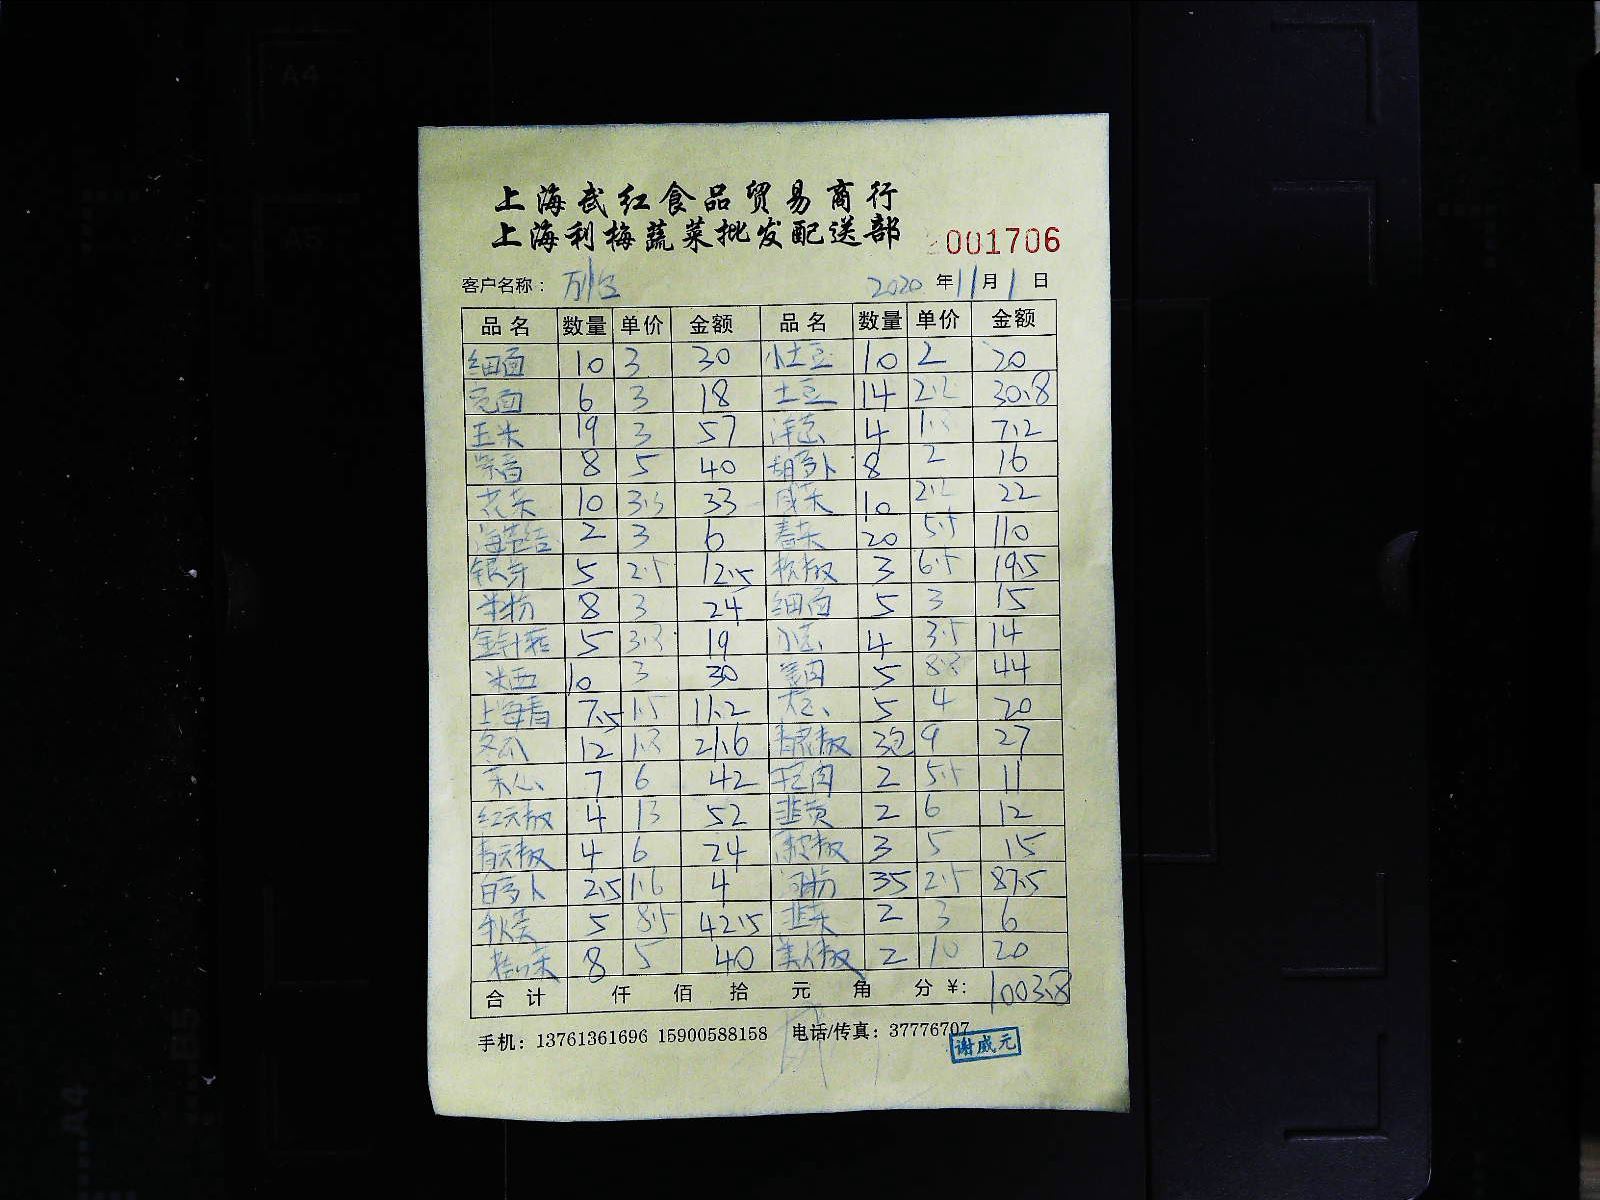 上海武红食品贸易商行
上海利梅蔬菜批发配送部
001706
客户名称： 2020 年 11 月 1 日
品名 数量 单价 金额 品名 数量 单价 金额
细面 10 3 30 小土豆 10 2 20
宽面 6 3 18 土豆 14 2.2 30.8
玉米 19 3 57 洋葱 4 1.8 7.2
8 5 40 胡萝卜 8 2 16
花菜 10 3.3 33 咸菜 10 2.2 22
海带结 2 3 6 20 5.5 110
银芽 5 2.5 12.5 3 6.5 19.5
米粉 8 3 24 细面 5 3 15
金针菇 5 3.8 19 小葱 4 3.5 14
10 3 30 姜肉 5 8.8 44
上海青 7.5 1.5 11.2 大葱 5 4 20
冬瓜 12 1.8 21.6 9 27
菜心 7 6 42 2 5.5 11
红尖椒 4 13 52 韭黄 2 6 12
青尖椒 4 6 24 3 5 15
白萝卜 2.5 1.6 4 河粉 35 2.5 87.5
5 8.5 42.5 韭菜 2 3 6
8 5 40 美人椒 2 10 20
合计 仟 佰 拾 元 角 分 ¥: 1003.8
手机：13761361696 15900588158 电话/传真：37776707
谢威元